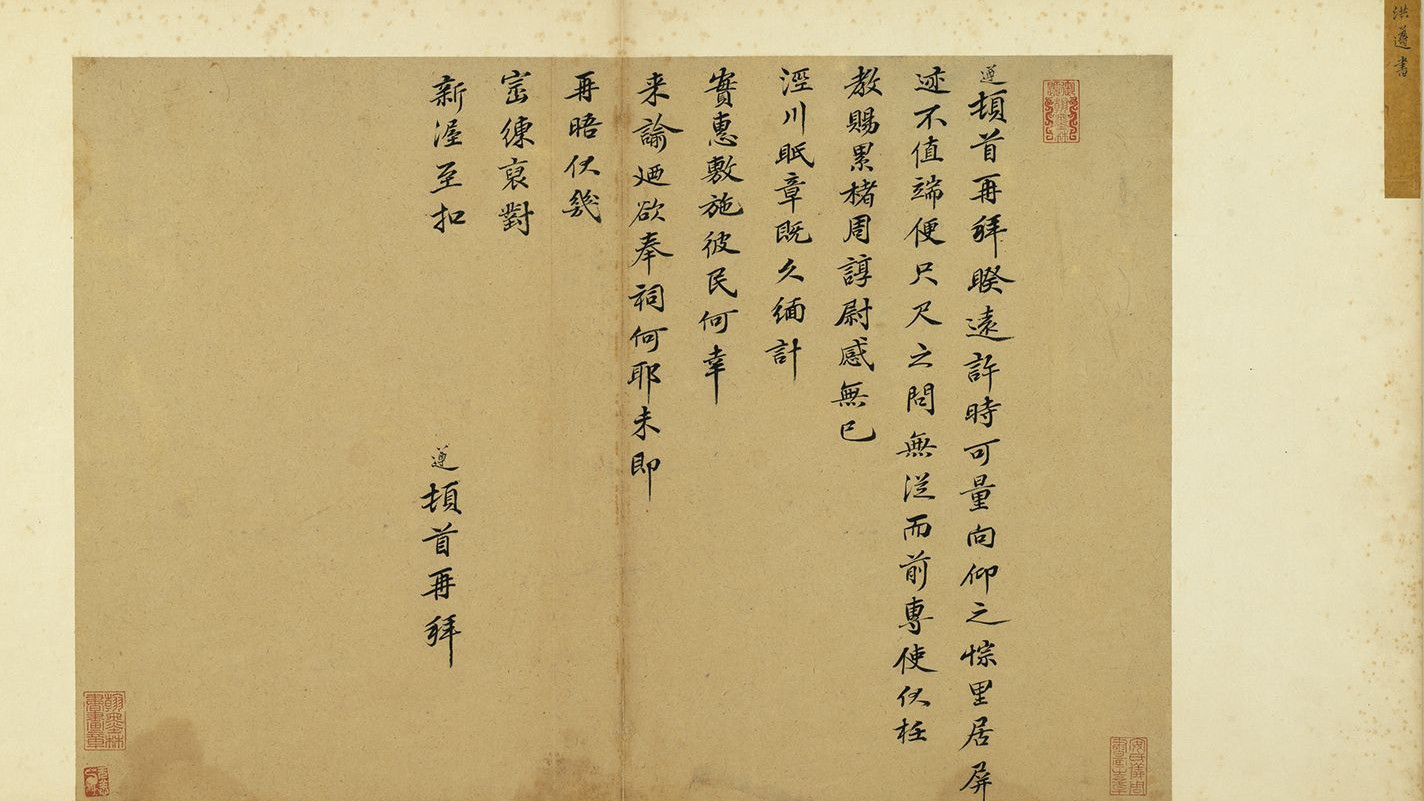 洪遵書
遵頓首再拜睽遠許時可量向仰之悰里居屏
迹不值端便尺尺之問無從而前專使伏枉
教賜累楮周諄尉感無已
涇川眂章既久緬計
實惠敷施彼民何幸
来諭廼欲奉祠何耶未即
再晤伏幾
密練裒對
新渥至扣
遵頓首再拜